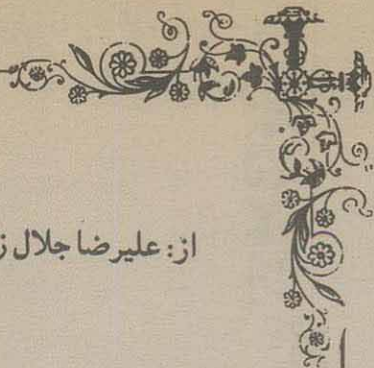 از: علیرضا جلال ز